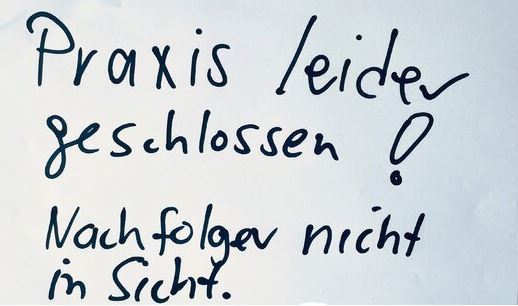 Praxis leider
geschlossen !
Nachfolger nicht
in Sicht.